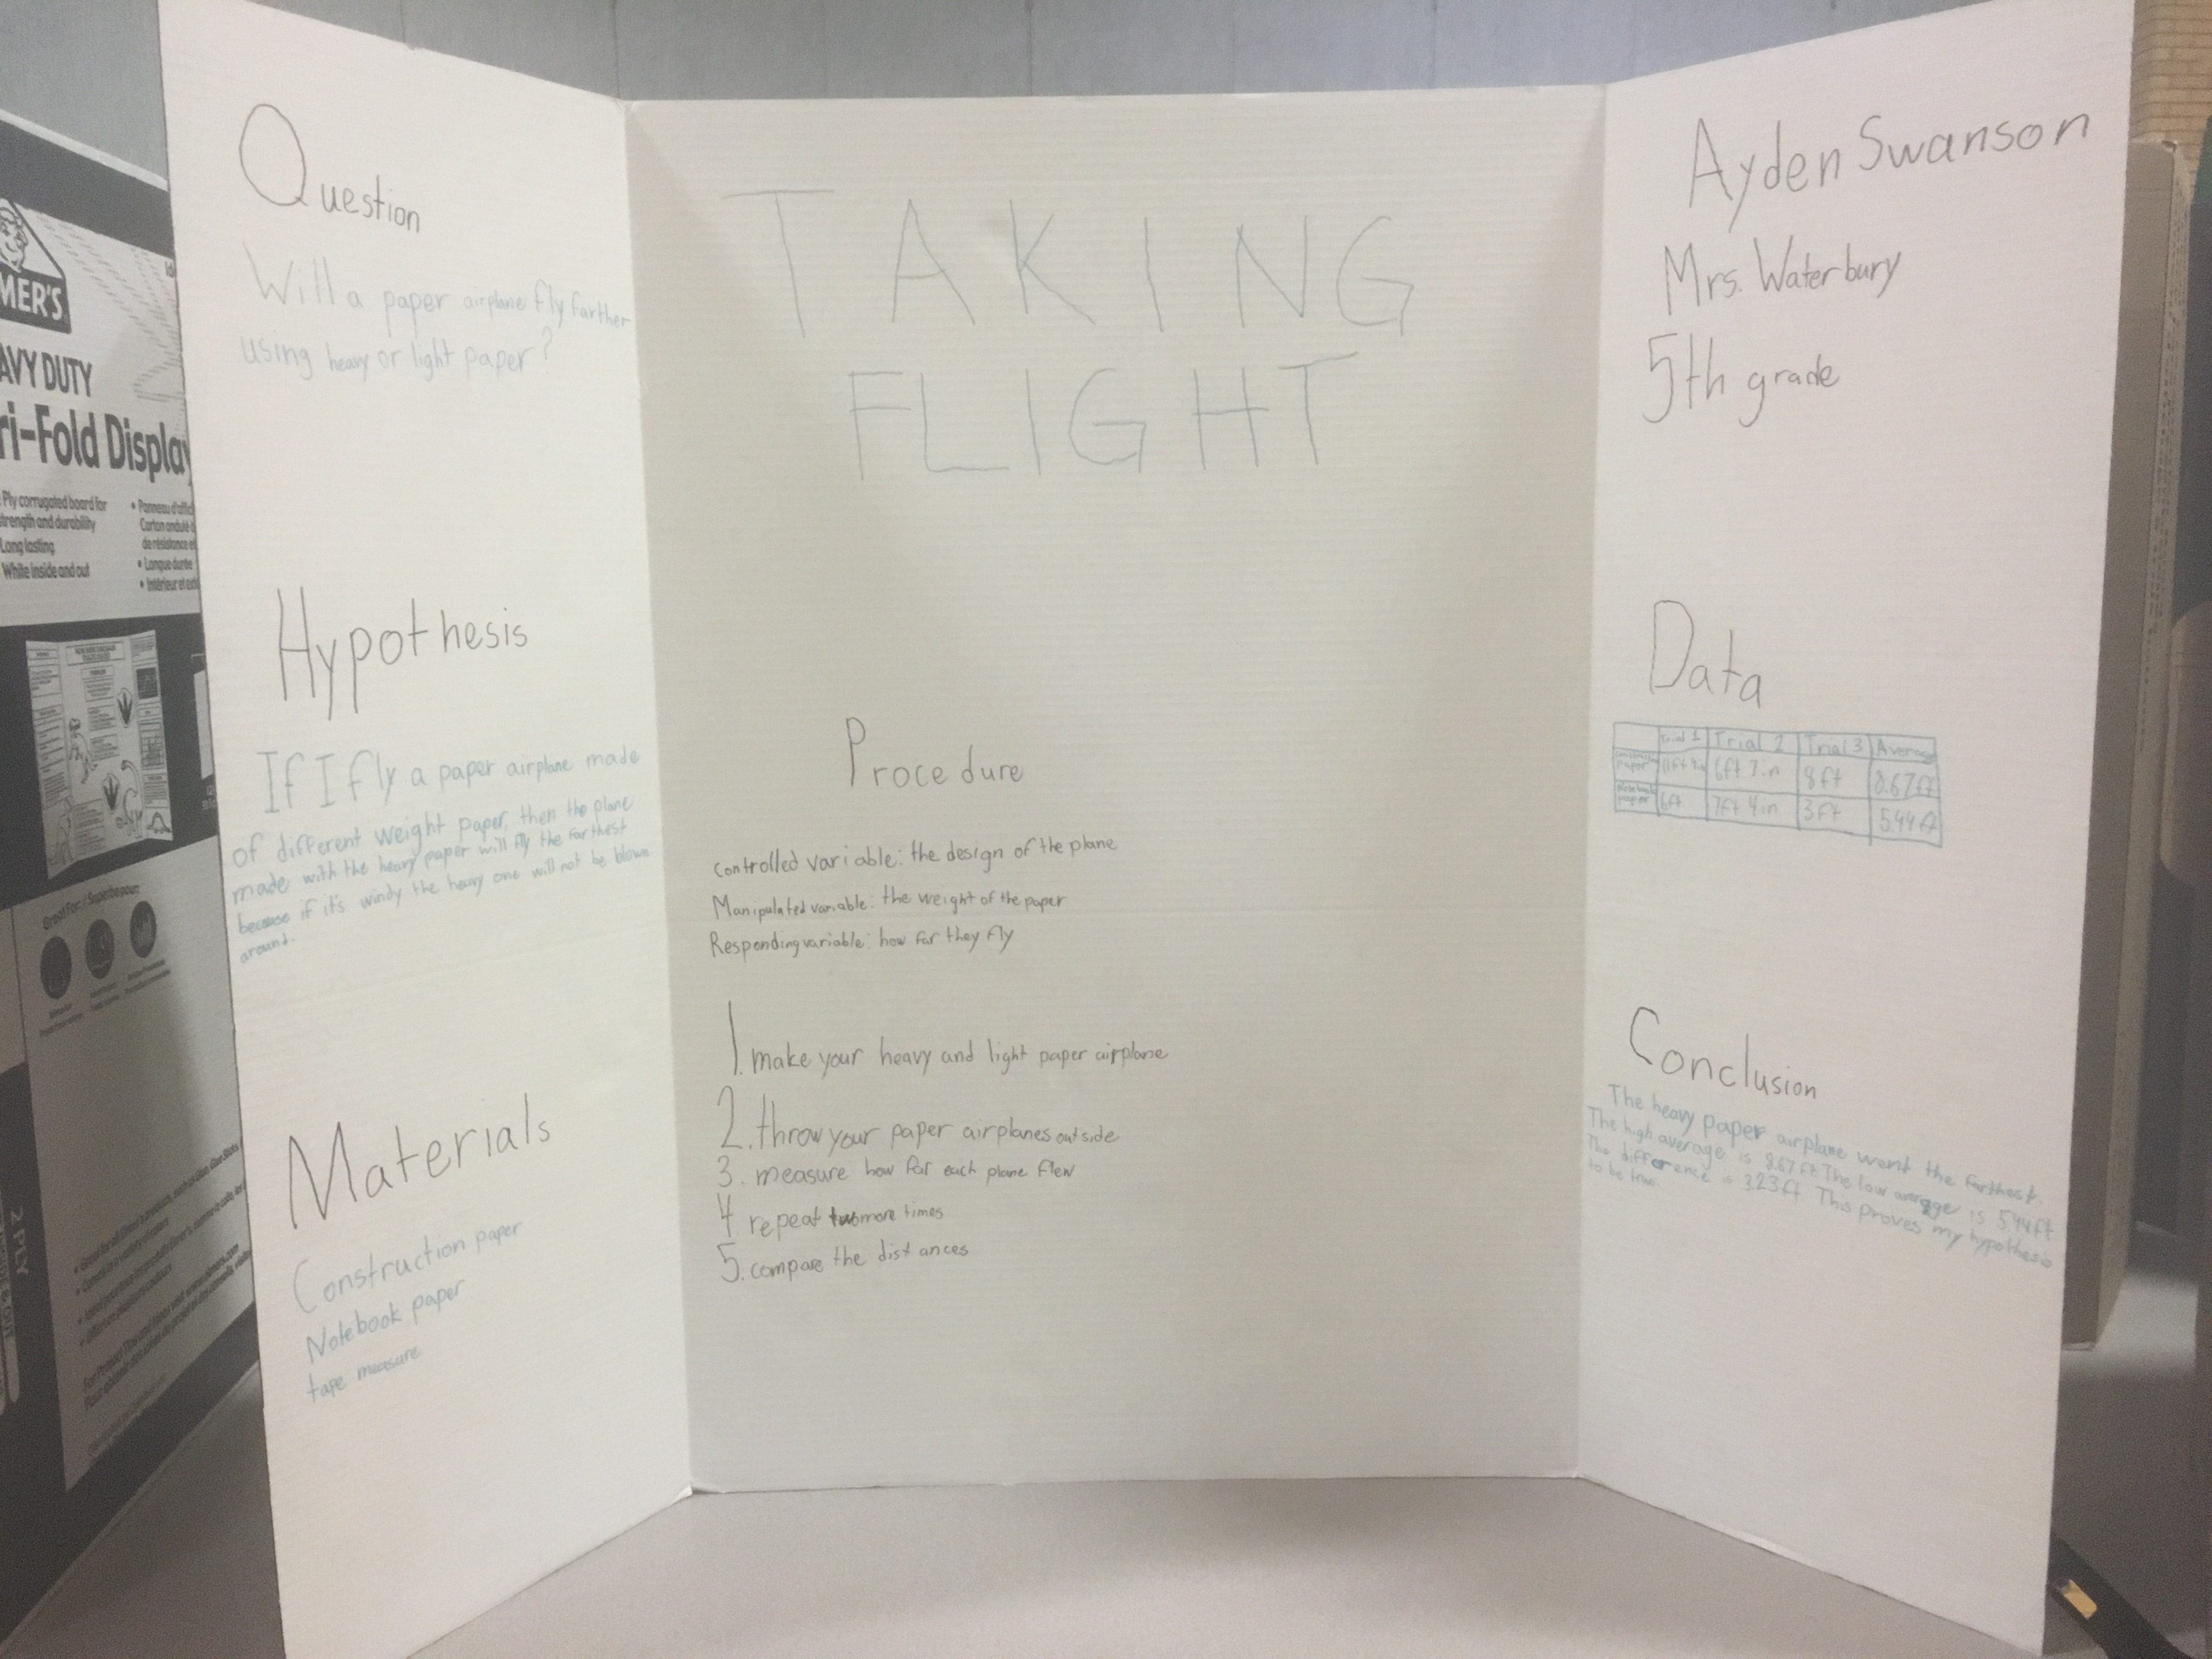 Question
Will a paper airplane fly farther
using heavy or light paper?
Hypothesis
If I fly a paper airplane made
of different weight paper, then the plane
made with the heavy paper will fly the farthest
because if it's windy the heavy one will not be blown
around.
Materials
Construction paper
Notebook paper
tape measure
TAKING
FLIGHT
Procedure
controlled variable: the design of the plane
Manipulated variable: the weight of the paper
Responding variable: how far they fly
1. make your heavy and light paper airplane
2. throw your paper airplanes outside
3. measure how far each plane flew
4 repeat two more times
5. compare the distances
Ayden Swanson
Mrs. Waterbury
5th grade
Data
Trial 1 Trial 2 Trial 3 Average
construction
paper 6ft 7in 8ft 8.67ft
Notebook
paper 6ft 7ft 4in 3ft 5.44ft
Conclusion
The heavy paper airplane went the farthest.
The high average is 8.67 ft. The low average is 5.44 ft.
The difference is 3.23 ft. This proves my hypothesis
to be true.
MER'S
AVY DUTY
ri-Fold Display
Ply corrugated board for
strength and durability
Long lasting
White inside and out
• Panneau d'affic
Carton ondulé
de résistance et
• Longue durée
• Intérieur et ext
Great For: / Superbe pour:
2 PLY